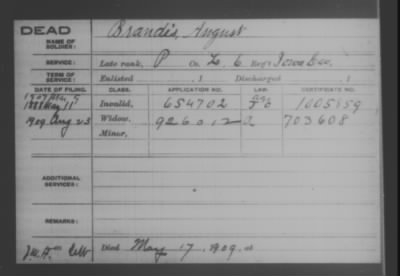 DEAD
NAME OF SOLDIER: Brandis, August
SERVICE: Late rank, P Co. L, 6 Reg't Iowa Cav.
TERM OF SERVICE: Enlisted , 1 Discharged , 1
DATE OF FILING. CLASS. APPLICATION NO. LAW. CERTIFICATE NO.
1888 May 11 Invalid, 654702 1005859
1909 Aug 23 Widow, 926012 703608
Minor,
ADDITIONAL SERVICES:
REMARKS:
Died May 17, 1909, at